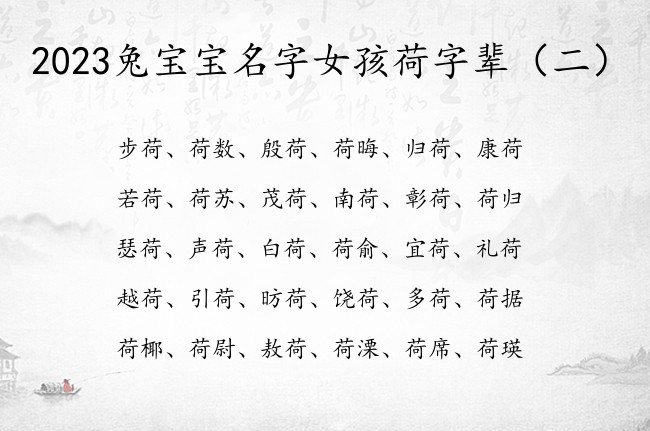 2023兔宝宝名字女孩荷字辈（二）
步荷、荷数、殷荷、荷晦、归荷、康荷
若荷、荷苏、茂荷、南荷、彰荷、荷归
瑟荷、声荷、白荷、荷俞、宜荷、礼荷
越荷、引荷、昉荷、饶荷、多荷、荷据
荷椰、荷尉、敖荷、荷溧、荷席、荷瑛